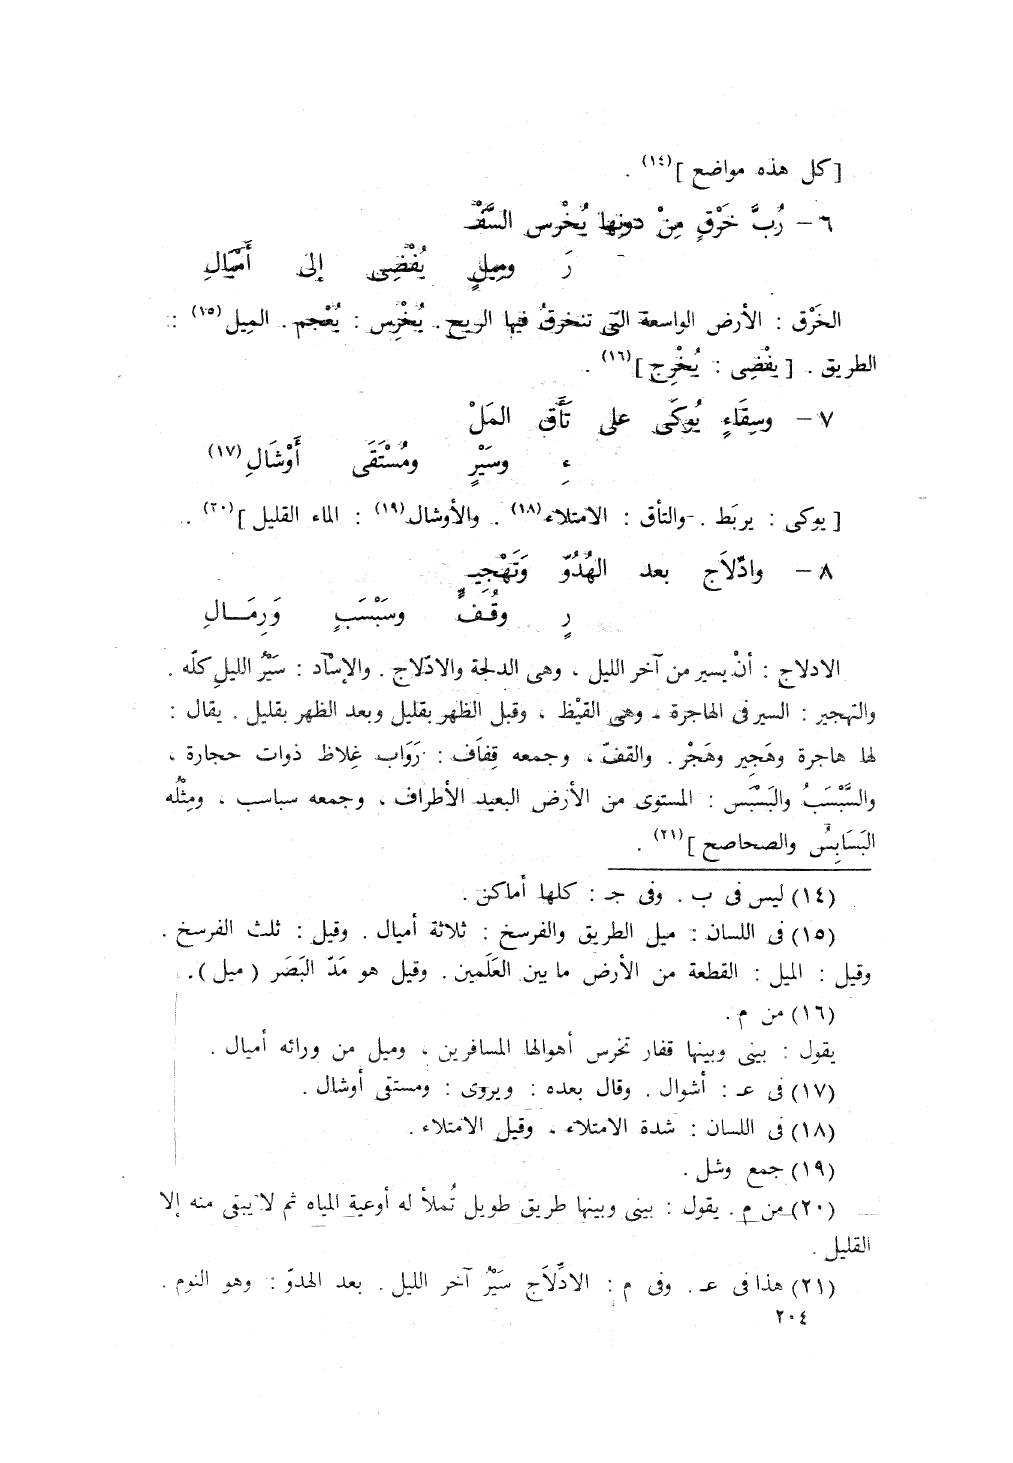 [كل هذه مواضع](١٤) .
٦ – رُبَّ خَرْقٍ مِنْ دونِها يُخْرس السَّفْـ
رَ ومِيلٍ يُفْضِى إلى أَمْيَالِ
الخَرْق : الأرض الواسعة التى تنخرقُ فيها الريح . يُخْرِس : يُعْجم . المِيل(١٥) :
الطريق . [يفْضِى : يُخْرِج](١٦) .
٧ – وسِقَاءٍ يُوكَى على تَأَقِ المَلْ
ءِ وسَيْرٍ ومُسْتَقَى أَوْشَالِ(١٧)
[يوكى : يربَط . والتأق : الامتلاء(١٨) . والأوشال(١٩) : الماء القليل](٢٠) .
٨ – وادّلاَج بعد الهُدُوّ وَتَهْجِيـ
رٍ وقُـفٍّ وسَبْسَبٍ وَرِمَـالِ
الادلاج : أنْ يسير من آخر الليل ، وهى الدلجة والادّلاج . والإسْآد : سَيْرُ الليلِ كلّه .
والتهجير : السير فى الهاجرة ، وهى القيْظ ، وقبل الظهر بقليل وبعد الظهر بقليل . يقال :
لها هاجرة وهَجِير وهَجْر . والقفّ ، وجمعه قِفاَف : رَوَاب غِلاظ ذوات حجارة ،
والسَّبْسَبُ والبَسْبَس : المستوى من الأرض البعيد الأطراف ، وجمعه سباسب ، ومِثْلُه
البَسَابِسُ والصحاصح](٢١) .
(١٤) ليس فى ب . وفى جـ : كلها أماكن .
(١٥) فى اللسان : ميل الطريق والفرسخ : ثلاثة أميال . وقيل : ثلث الفرسخ .
وقيل : الميل : القطعة من الأرض ما بين العَلَمين . وقيل هو مَدّ البَصَر (ميل) .
(١٦) من م .
يقول : بينى وبينها قفار تخرس أهوالها المسافرين ، وميل من ورائه أميال .
(١٧) فى عـ : أشوال . وقال بعده : ويروى : ومستقى أوشال .
(١٨) فى اللسان : شدة الامتلاء ، وقيل الامتلاء .
(١٩) جمع وشل .
(٢٠) من م . يقول : بينى وبينها طريق طويل تُملأ له أوعية المياه ثم لا يبقى منه إلا
القليل .
(٢١) هذا فى عـ . وفى م : الادِّلاَج سَيْرُ آخر الليل . بعد الهدوّ : وهو النوم .
٢٠٤